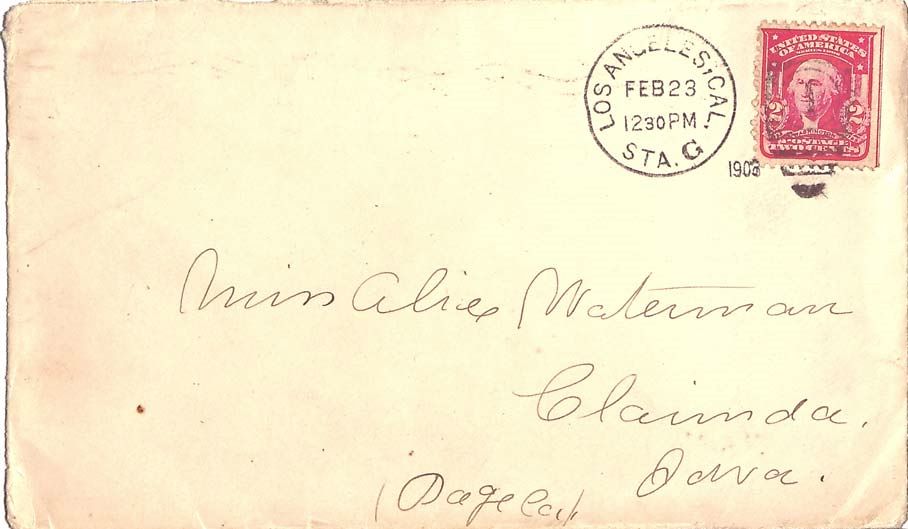 LOS ANGELES, CAL.
FEB 23
12 30 PM
STA. G
UNITED STATES
OF AMERICA
2 2
WASHINGTON
POSTAGE
TWO CENTS
Miss Alice Waterman
Clarinda,
Iowa.
(Page Co.)